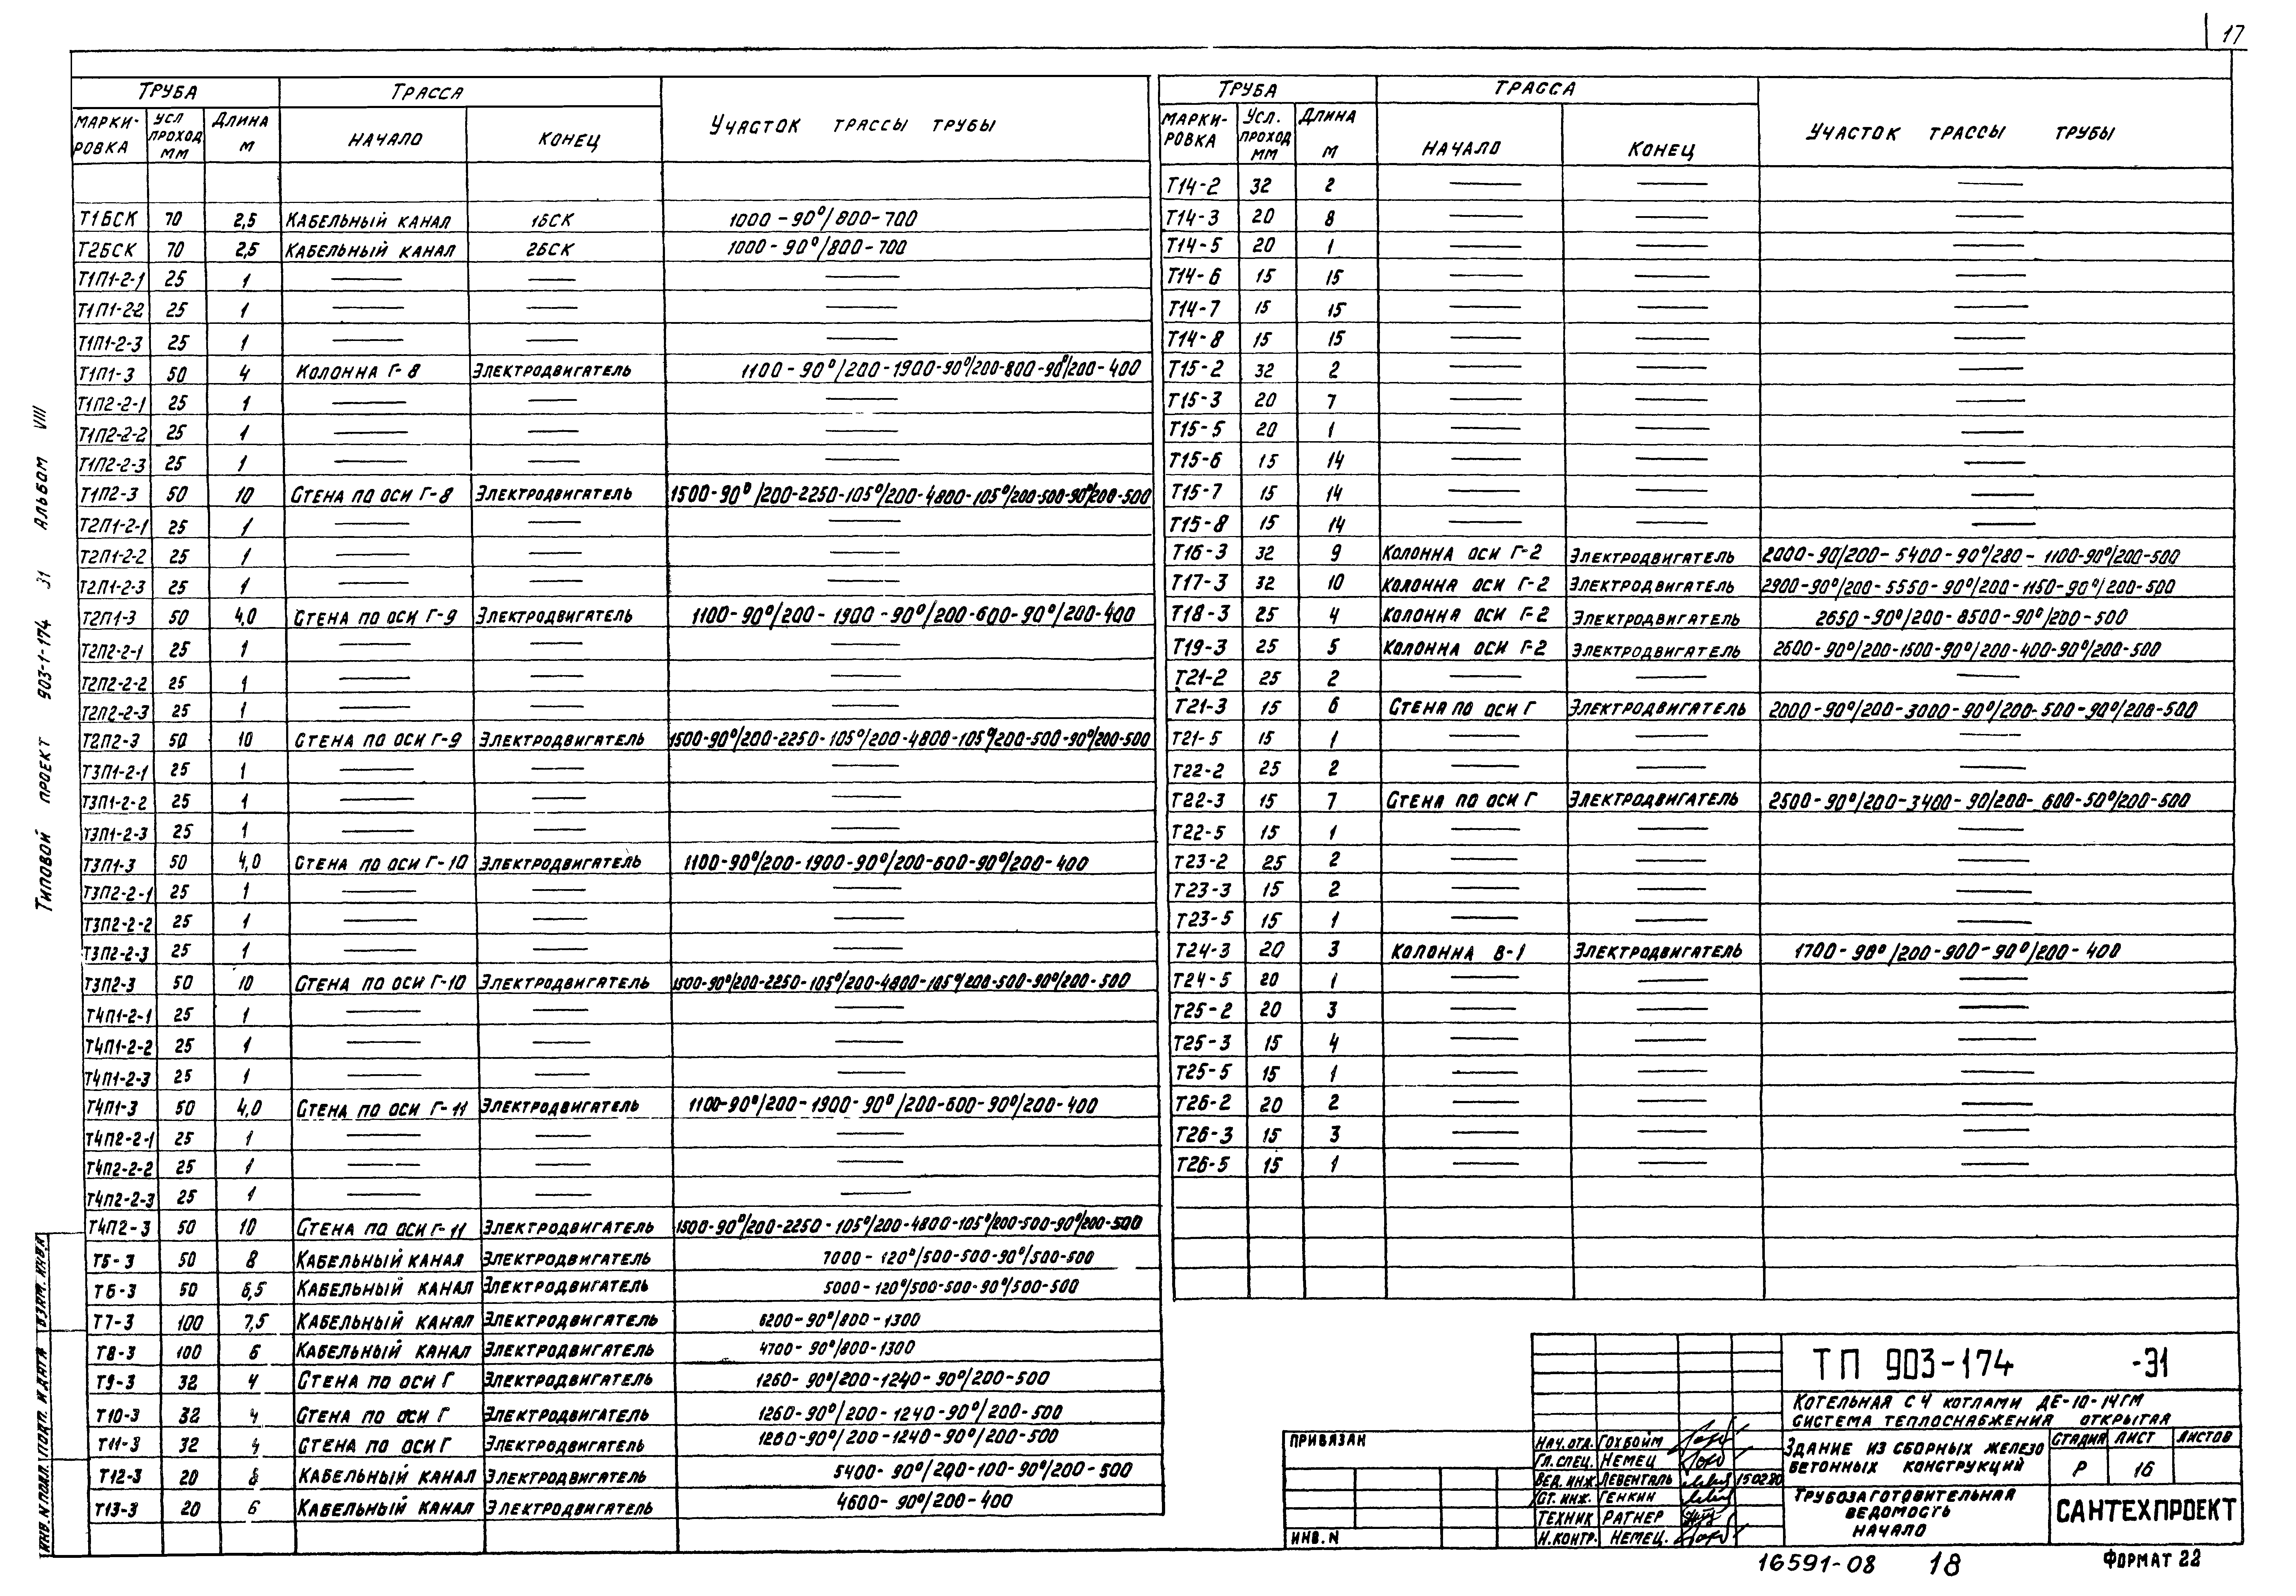 17
ТРУБА ТРАССА УЧАСТОК ТРАССЫ ТРУБЫ
МАРКИ-РОВКА УСЛ ПРОХОД ММ ДЛИНА М НАЧАЛО КОНЕЦ
Т1БСК 70 2,5 КАБЕЛЬНЫЙ КАНАЛ 1БСК 1000-90°/800-700
Т2БСК 70 2,5 КАБЕЛЬНЫЙ КАНАЛ 2БСК 1000-90°/800-700
Т1П1-2-1 25 1 — — —
Т1П1-22 25 1 — — —
Т1П1-2-3 25 1 — — —
Т1П1-3 50 4 КОЛОННА Г-8 ЭЛЕКТРОДВИГАТЕЛЬ 1100-90°/200-1900-90°/200-800-90°/200-400
Т1П2-2-1 25 1 — — —
Т1П2-2-2 25 1 — — —
Т1П2-2-3 25 1 — — —
Т1П2-3 50 10 СТЕНА ПО ОСИ Г-8 ЭЛЕКТРОДВИГАТЕЛЬ 1500-90°/200-2250-105°/200-4800-105°/200-500-90°/200-500
Т2П1-2-1 25 1 — — —
Т2П1-2-2 25 1 — — —
Т2П1-2-3 25 1 — — —
Т2П1-3 50 4,0 СТЕНА ПО ОСИ Г-9 ЭЛЕКТРОДВИГАТЕЛЬ 1100-90°/200-1900-90°/200-600-90°/200-400
Т2П2-2-1 25 1 — — —
Т2П2-2-2 25 1 — — —
Т2П2-2-3 25 1 — — —
Т2П2-3 50 10 СТЕНА ПО ОСИ Г-9 ЭЛЕКТРОДВИГАТЕЛЬ 1500-90°/200-2250-105°/200-4800-105°/200-500-90°/200-500
Т3П1-2-1 25 1 — — —
Т3П1-2-2 25 1 — — —
Т3П1-2-3 25 1 — — —
Т3П1-3 50 4,0 СТЕНА ПО ОСИ Г-10 ЭЛЕКТРОДВИГАТЕЛЬ 1100-90°/200-1900-90°/200-600-90°/200-400
Т3П2-2-1 25 1 — — —
Т3П2-2-2 25 1 — — —
Т3П2-2-3 25 1 — — —
Т3П2-3 50 10 СТЕНА ПО ОСИ Г-10 ЭЛЕКТРОДВИГАТЕЛЬ 1500-90°/200-2250-105°/200-4800-105°/200-500-90°/200-500
Т4П1-2-1 25 1 — — —
Т4П1-2-2 25 1 — — —
Т4П1-2-3 25 1 — — —
Т4П1-3 50 4,0 СТЕНА ПО ОСИ Г-11 ЭЛЕКТРОДВИГАТЕЛЬ 1100-90°/200-1900-90°/200-600-90°/200-400
Т4П2-2-1 25 1 — — —
Т4П2-2-2 25 1 — — —
Т4П2-2-3 25 1 — — —
Т4П2-3 50 10 СТЕНА ПО ОСИ Г-11 ЭЛЕКТРОДВИГАТЕЛЬ 1500-90°/200-2250-105°/200-4800-105°/200-500-90°/200-500
Т5-3 50 8 КАБЕЛЬНЫЙ КАНАЛ ЭЛЕКТРОДВИГАТЕЛЬ 7000-120°/500-500-90°/500-500
Т6-3 50 6,5 КАБЕЛЬНЫЙ КАНАЛ ЭЛЕКТРОДВИГАТЕЛЬ 5000-120°/500-500-90°/500-500
Т7-3 100 7,5 КАБЕЛЬНЫЙ КАНАЛ ЭЛЕКТРОДВИГАТЕЛЬ 6200-90°/800-1300
Т8-3 100 6 КАБЕЛЬНЫЙ КАНАЛ ЭЛЕКТРОДВИГАТЕЛЬ 4700-90°/800-1300
Т9-3 32 4 СТЕНА ПО ОСИ Г ЭЛЕКТРОДВИГАТЕЛЬ 1260-90°/200-1240-90°/200-500
Т10-3 32 4 СТЕНА ПО ОСИ Г ЭЛЕКТРОДВИГАТЕЛЬ 1260-90°/200-1240-90°/200-500
Т11-3 32 4 СТЕНА ПО ОСИ Г ЭЛЕКТРОДВИГАТЕЛЬ 1260-90°/200-1240-90°/200-500
Т12-3 20 8 КАБЕЛЬНЫЙ КАНАЛ ЭЛЕКТРОДВИГАТЕЛЬ 5400-90°/200-100-90°/200-500
Т13-3 20 6 КАБЕЛЬНЫЙ КАНАЛ ЭЛЕКТРОДВИГАТЕЛЬ 4600-90°/200-400
ТРУБА ТРАССА УЧАСТОК ТРАССЫ ТРУБЫ
МАРКИ-РОВКА УСЛ. ПРОХОД ММ ДЛИНА М НАЧАЛО КОНЕЦ
Т14-2 32 2 — — —
Т14-3 20 8 — — —
Т14-5 20 1 — — —
Т14-6 15 15 — — —
Т14-7 15 15 — — —
Т14-8 15 15 — — —
Т15-2 32 2 — — —
Т15-3 20 7 — — —
Т15-5 20 1 — — —
Т15-6 15 14 — — —
Т15-7 15 14 — — —
Т15-8 15 14 — — —
Т16-3 32 9 КОЛОННА ОСИ Г-2 ЭЛЕКТРОДВИГАТЕЛЬ 2000-90/200-5400-90°/280-1100-90°/200-500
Т17-3 32 10 КОЛОННА ОСИ Г-2 ЭЛЕКТРОДВИГАТЕЛЬ 2900-90°/200-5550-90°/200-1150-90°/200-500
Т18-3 25 4 КОЛОННА ОСИ Г-2 ЭЛЕКТРОДВИГАТЕЛЬ 2650-90°/200-8500-90°/200-500
Т19-3 25 5 КОЛОННА ОСИ Г-2 ЭЛЕКТРОДВИГАТЕЛЬ 2600-90°/200-1500-90°/200-400-90°/200-500
Т21-2 25 2 — — —
Т21-3 15 6 СТЕНА ПО ОСИ Г ЭЛЕКТРОДВИГАТЕЛЬ 2000-90°/200-3000-90°/200-500-90°/200-500
Т21-5 15 1 — — —
Т22-2 25 2 — — —
Т22-3 15 7 СТЕНА ПО ОСИ Г ЭЛЕКТРОДВИГАТЕЛЬ 2500-90°/200-3400-90/200-600-50°/200-500
Т22-5 15 1 — — —
Т23-2 25 2 — — —
Т23-3 15 2 — — —
Т23-5 15 1 — — —
Т24-3 20 3 КОЛОННА В-1 ЭЛЕКТРОДВИГАТЕЛЬ 1700-90°/200-900-90°/200-400
Т24-5 20 1 — — —
Т25-2 20 3 — — —
Т25-3 15 4 — — —
Т25-5 15 1 — — —
Т26-2 20 2 — — —
Т26-3 15 3 — — —
Т26-5 15 1 — — —
ТИПОВОЙ ПРОЕКТ 903-1-174 Э1 АЛЬБОМ VIII
ИНВ.N ПОДЛ. ПОДП. И ДАТА ВЗАМ. ИНВ.N
ПРИВЯЗАН
ИНВ.N
НАЧ.ОТД. ГОХБОЙМ
ГЛ.СПЕЦ. НЕМЕЦ
ВЕД.ИНЖ. ЛЕВЕНТАЛЬ 15.02.80
СТ.ИНЖ. ГЕНКИН
ТЕХНИК РАТНЕР
Н.КОНТР. НЕМЕЦ.
ТП 903-174 -Э1
КОТЕЛЬНАЯ С 4 КОТЛАМИ ДЕ-10-14ГМ
СИСТЕМА ТЕПЛОСНАБЖЕНИЯ ОТКРЫТАЯ
ЗДАНИЕ ИЗ СБОРНЫХ ЖЕЛЕЗО
БЕТОННЫХ КОНСТРУКЦИЙ
СТАДИЯ ЛИСТ ЛИСТОВ
Р 16
ТРУБОЗАГОТОВИТЕЛЬНАЯ
ВЕДОМОСТЬ
НАЧАЛО
САНТЕХПРОЕКТ
16591-08 18 ФОРМАТ 22